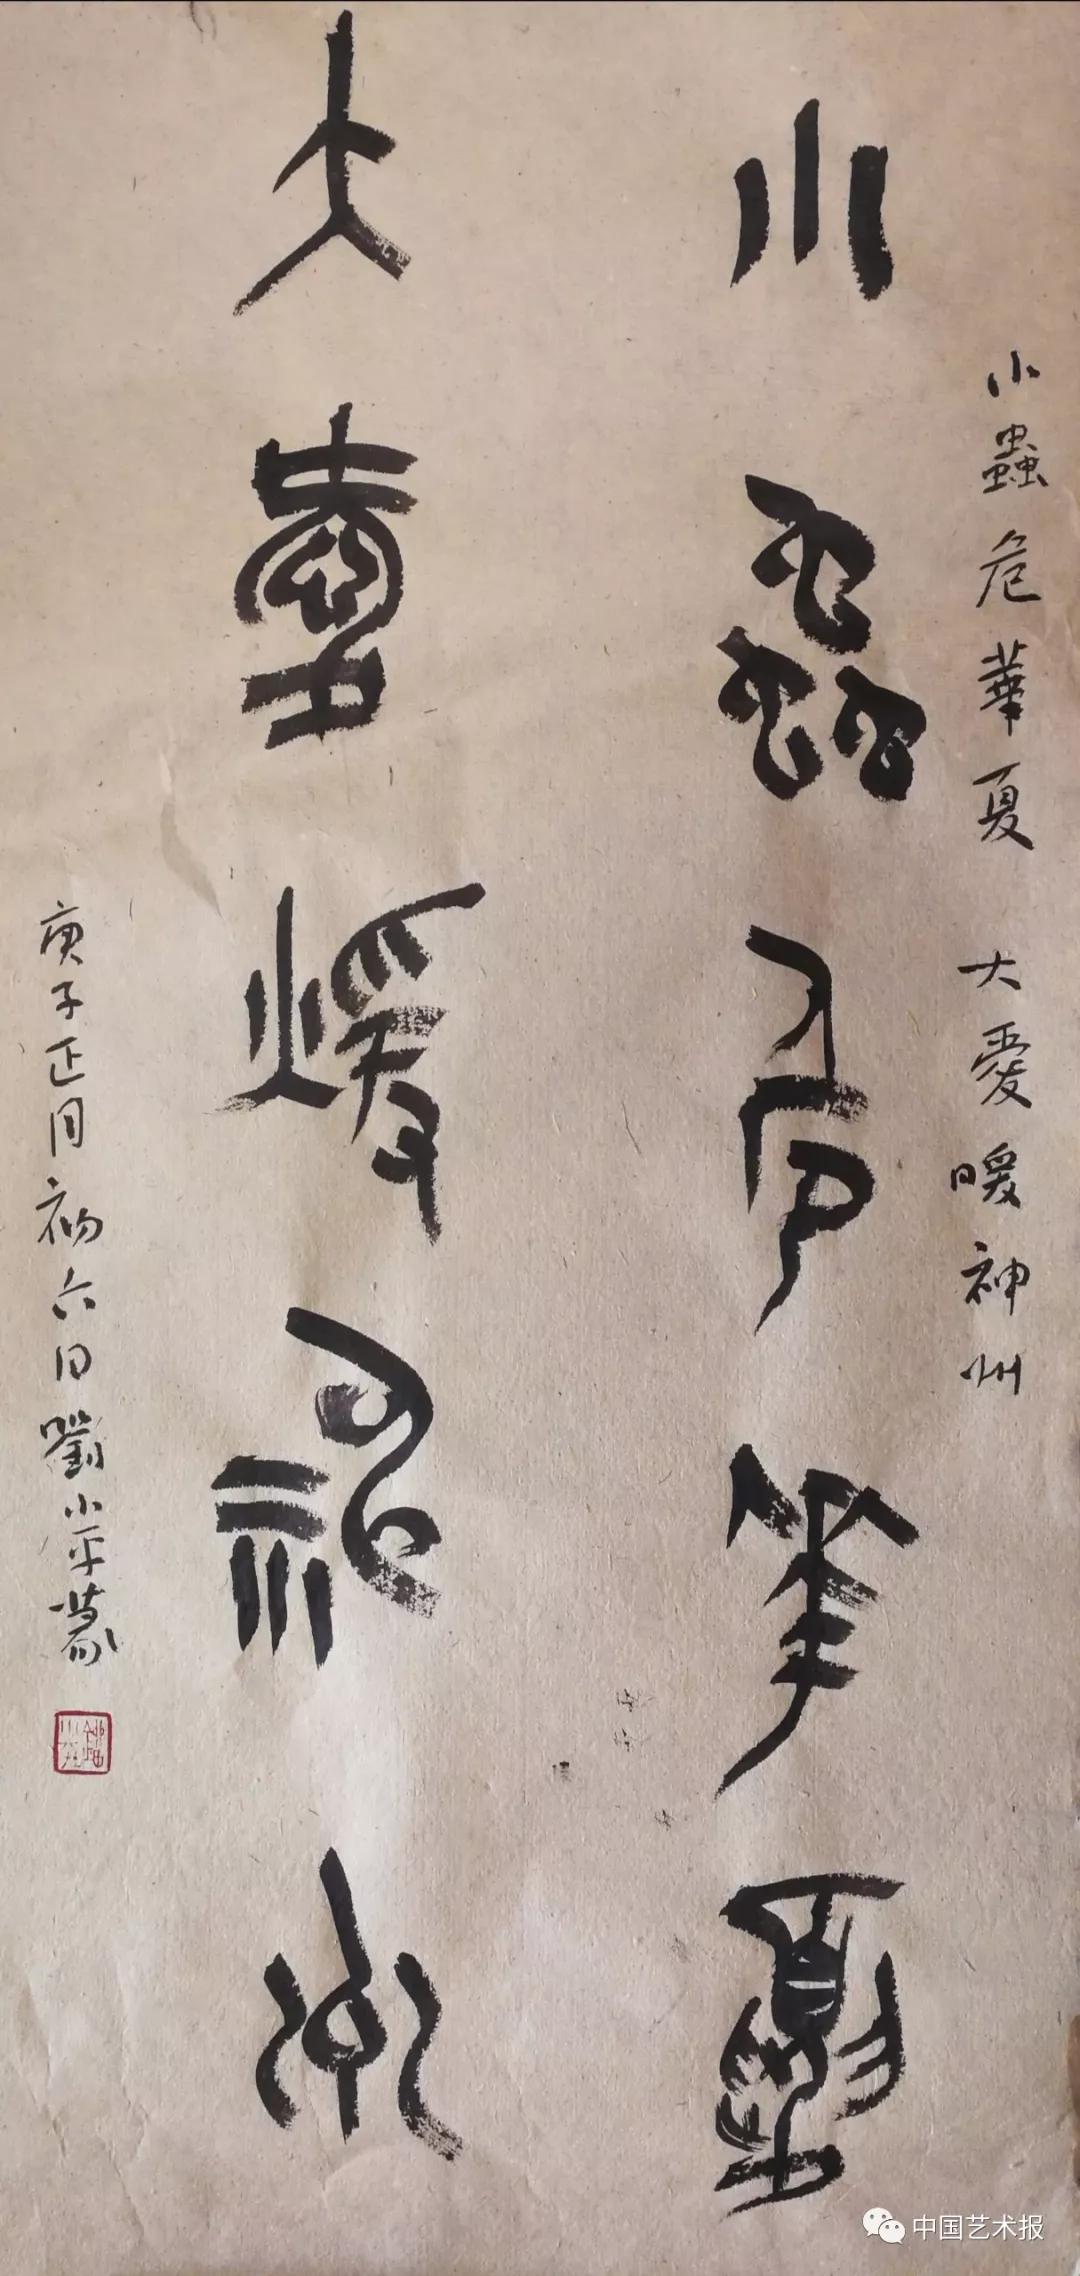 小蟲危華夏
大愛煖神州
小蟲危華夏 大愛暖神州
庚子正月初六日劉小平篆
中国艺术报